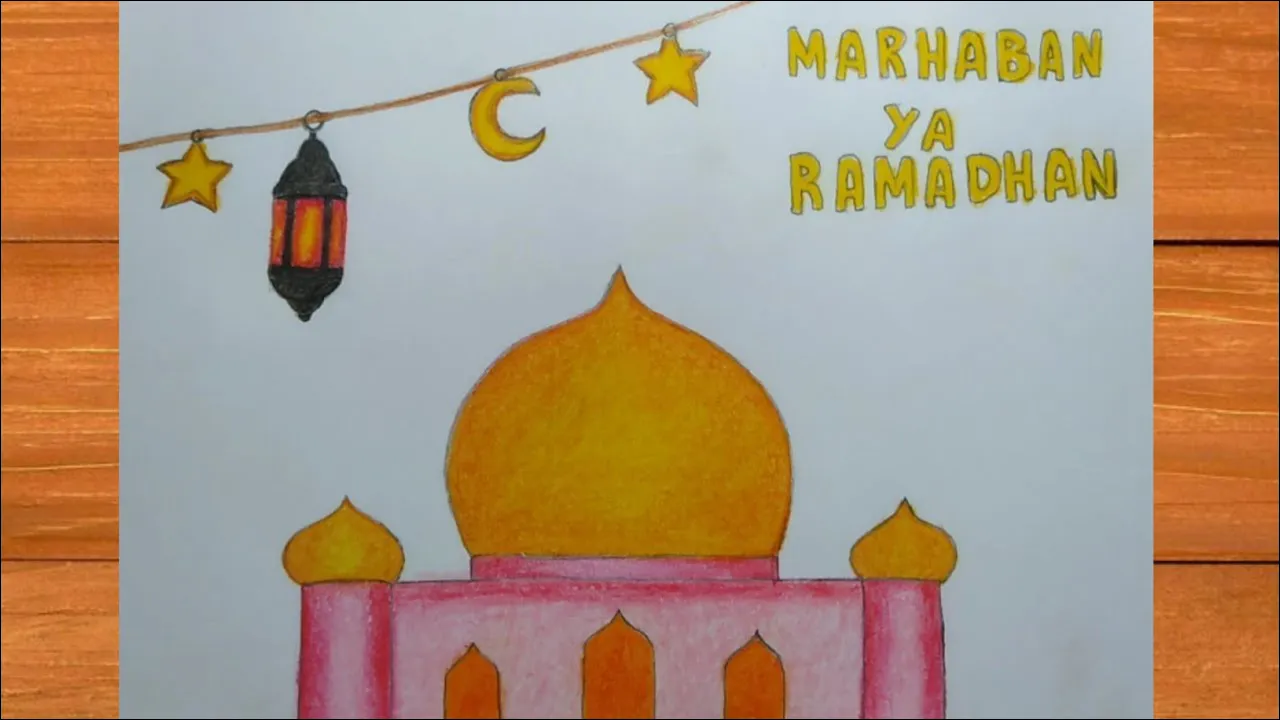 MARHABAN
YA
RAMADHAN